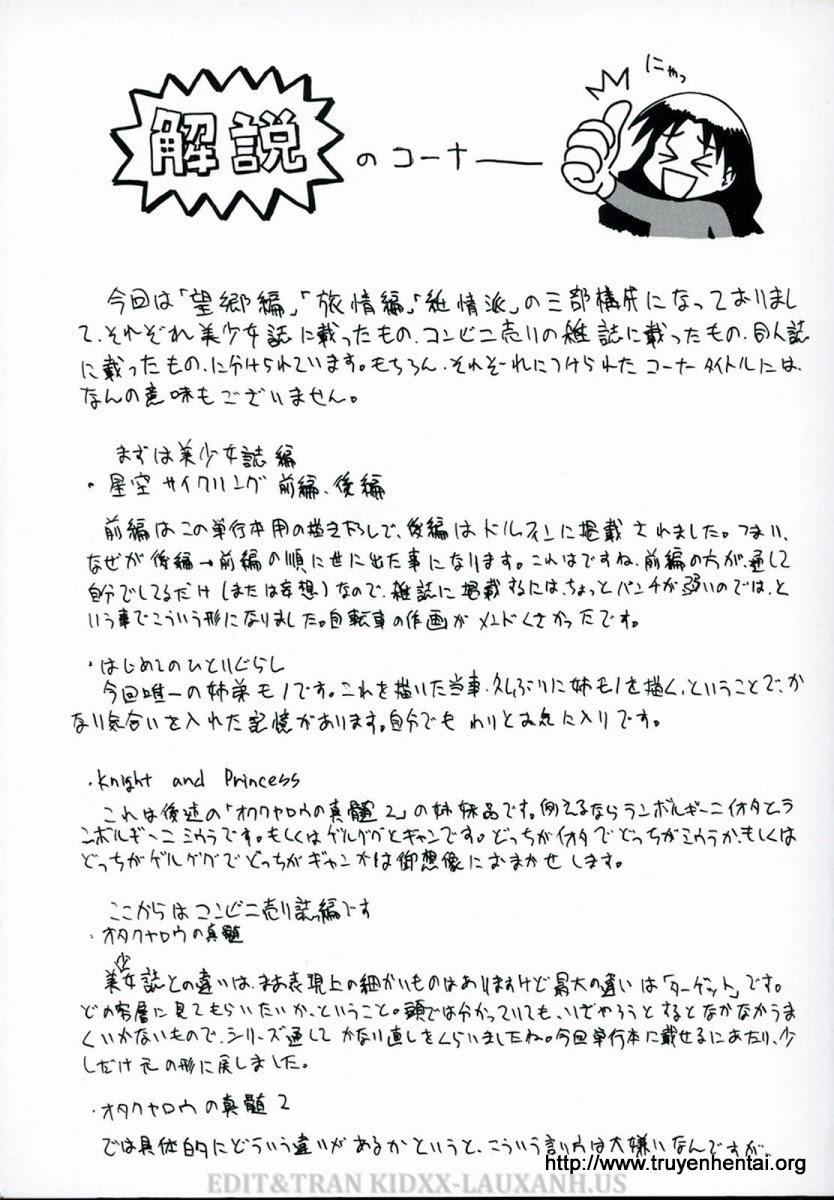 にゃっ
解説のコーナー
今回は「望郷編」「旅情編」「純情派」の三部構成になっておりまし
て、それぞれ美少女誌に載ったもの、コンビニ売りの雑誌に載ったもの、同人誌
に載ったもの、に分けられています。もちろん、それぞれにつけられたコーナータイトルには、
なんの意味もございません。
まずは美少女誌編
・星空サイクリング 前編、後編
前編はこの単行本用の描き下しで、後編はドルフィンに掲載されました。つまり、
なぜか後編→前編の順に世に出た事になります。これはですね、前編の方が、通して
自分でしてるだけ(または妄想)なので、雑誌に掲載するには、ちょっとパンチが弱いのでは、と
いう事でこういう形になりました。自転車の作画がメンドくさかったです。
・はじめてのひとりぐらし
今回唯一の姉弟モノです。これを描いた当事、久しぶりに姉モノを描く、ということで、か
なり気合いを入れた記憶があります。自分でもわりとお気に入りです。
・Knight and Princess
これは後述の「オタクヤロウの真髄2」の姉妹品です。例えるならランボルギーニイオタとラ
ンボルギーニミウラです。もしくはゲルググとギャンです。どっちがイオタでどっちがミウラか、もしくは
どっちがゲルググでどっちがギャンかは御想像におまかせします。
ここからはコンビニ売り誌編です
・オタクヤロウの真髄
美少女誌との違いは、まあ表現上の細かいものはありますけど最大の違いは「ターゲット」です。
どの客層に見てもらいたいか、ということ。頭では分かっていても、いざやろうとするとなかなかうま
くいかないもので、シリーズ通してかなり直しをくらいましたね。今回単行本に載せるにあたり、少
しだけ元の形に戻しました。
・オタクヤロウの真髄 2
では具体的にどういう違いがあるかというと、こういう言い方は大嫌いなんですが、
http://www.truyenhentai.org
EDIT&TRAN KIDXX-LAUXANH.US